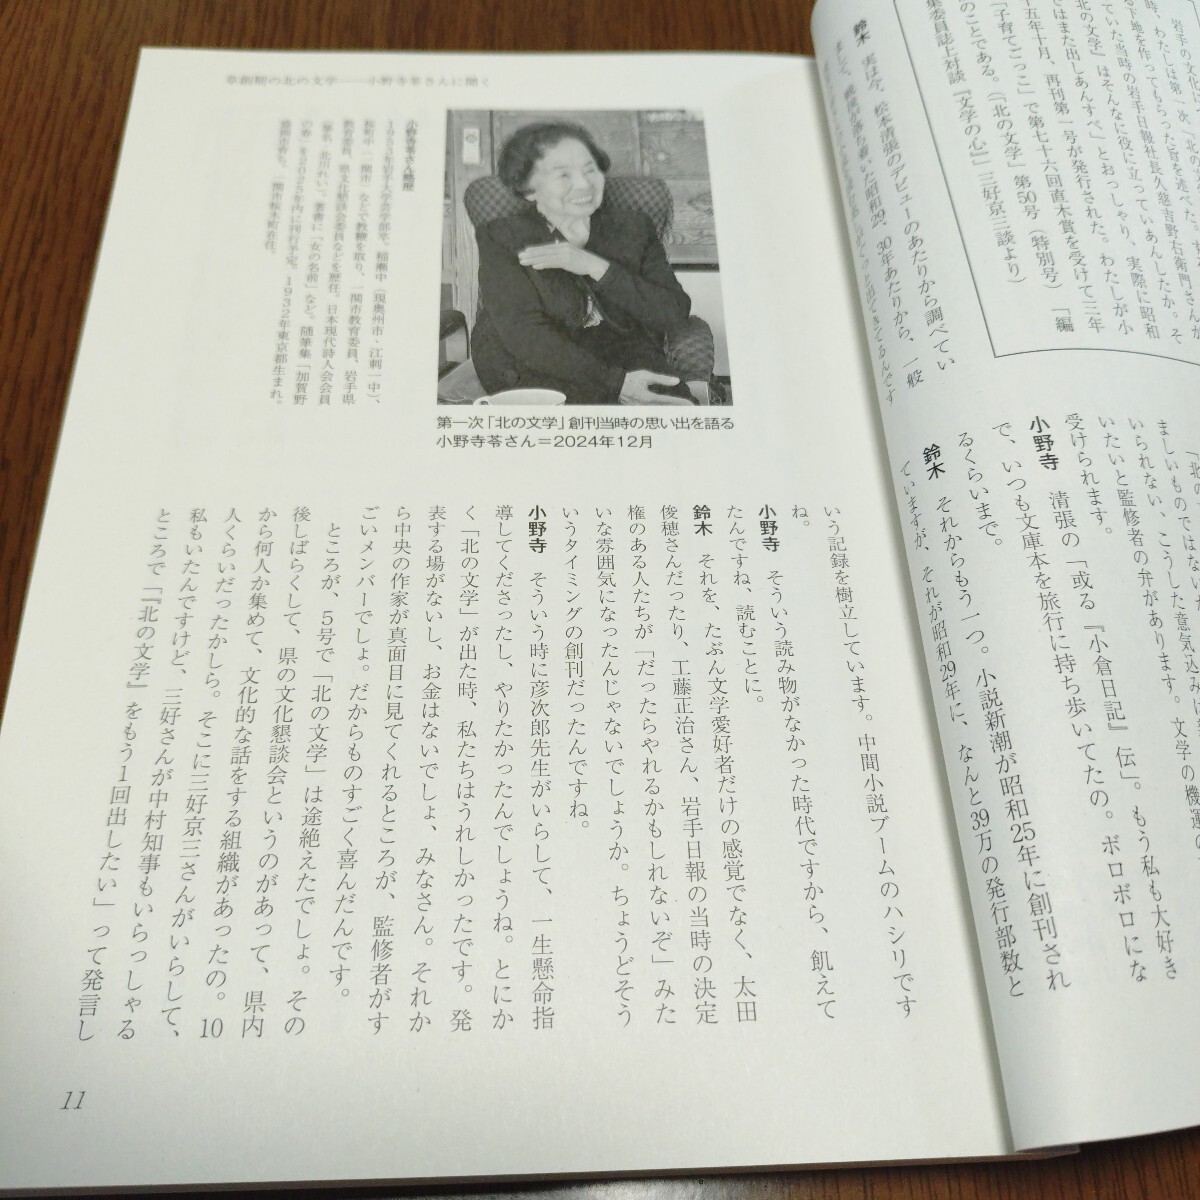 岩手の文化
時、わたしは第一次、「北の文
る下地を作ってもらった旨を述べた。
ていた当時の岩手日報社長久慈吉野右衛門さんが
北の文学』はそんなに役に立っていあんしたか。そ
ではまた出しあんすべ」とおっしゃり、実際に昭和
十五年十月、再刊第一号が発行された。わたしが小
「子育てごっこ」で第七十六回直木賞を受けて三年
のことである。（「北の文学」第50号（特別号）「編
集委員誌上対談『文学の心』」三好京三談より）
鈴木　実は今、松本清張のデビューのあたりから調べてい
まして、戦後が落ち着いた昭和29、30年あたりから、一般
ましいものではな
いられない、こうした意気込み
いたいと監修者の弁があります。文学の機運の
受けられます。
小野寺　清張の「或る『小倉日記』伝」。もう私も大好き
で、いつも文庫本を旅行に持ち歩いてたの。ボロボロにな
るくらいまで。
鈴木　それからもう一つ。小説新潮が昭和25年に創刊され
ていますが、それが昭和29年に、なんと39万の発行部数と
草創期の北の文学――小野寺苓さんに聞く
第一次「北の文学」創刊当時の思い出を語る
小野寺苓さん＝2024年12月
小野寺苓さん略歴
1955年岩手大学芸学部卒。稲瀬中（現奥州市・江刺一中）、
桜町中（一関市）などで教鞭を取り、一関市教育委員、岩手県
教育委員、県文化懇談会委員などを歴任。日本現代詩人会会員
（筆名・北川れい）。著書に「女の名前」など。随筆集「加賀野
の春」を2025年内に刊行予定。1932年東京都生まれ。
盛岡市育ち。一関市桜木町在住。
いう記録を樹立しています。中間小説ブームのハシリです
ね。
小野寺　そういう読み物がなかった時代ですから、飢えて
たんですね、読むことに。
鈴木　それを、たぶん文学愛好者だけの感覚でなく、太田
俊穂さんだったり、工藤正治さん、岩手日報の当時の決定
権のある人たちが「だったらやれるかもしれないぞ」みた
いな雰囲気になったんじゃないでしょうか。ちょうどそう
いうタイミングの創刊だったんですね。
小野寺　そういう時に彦次郎先生がいらして、一生懸命指
導してくださったし、やりたかったんでしょうね。とにか
く「北の文学」が出た時、私たちはうれしかったです。発
表する場がないし、お金はないでしょ、みなさん。それか
ら中央の作家が真面目に見てくれるところが、監修者がす
ごいメンバーでしょ。だからものすごく喜んだんです。
ところが、5号で「北の文学」は途絶えたでしょ。その
後しばらくして、県の文化懇談会というのがあって、県内
から何人か集めて、文化的な話をする組織があったの。10
人くらいだったかしら。そこに三好京三さんがいらして、
私もいたんですけど、三好さんが中村知事もいらっしゃる
ところで「『北の文学』をもう1回出したい」って発言し
11